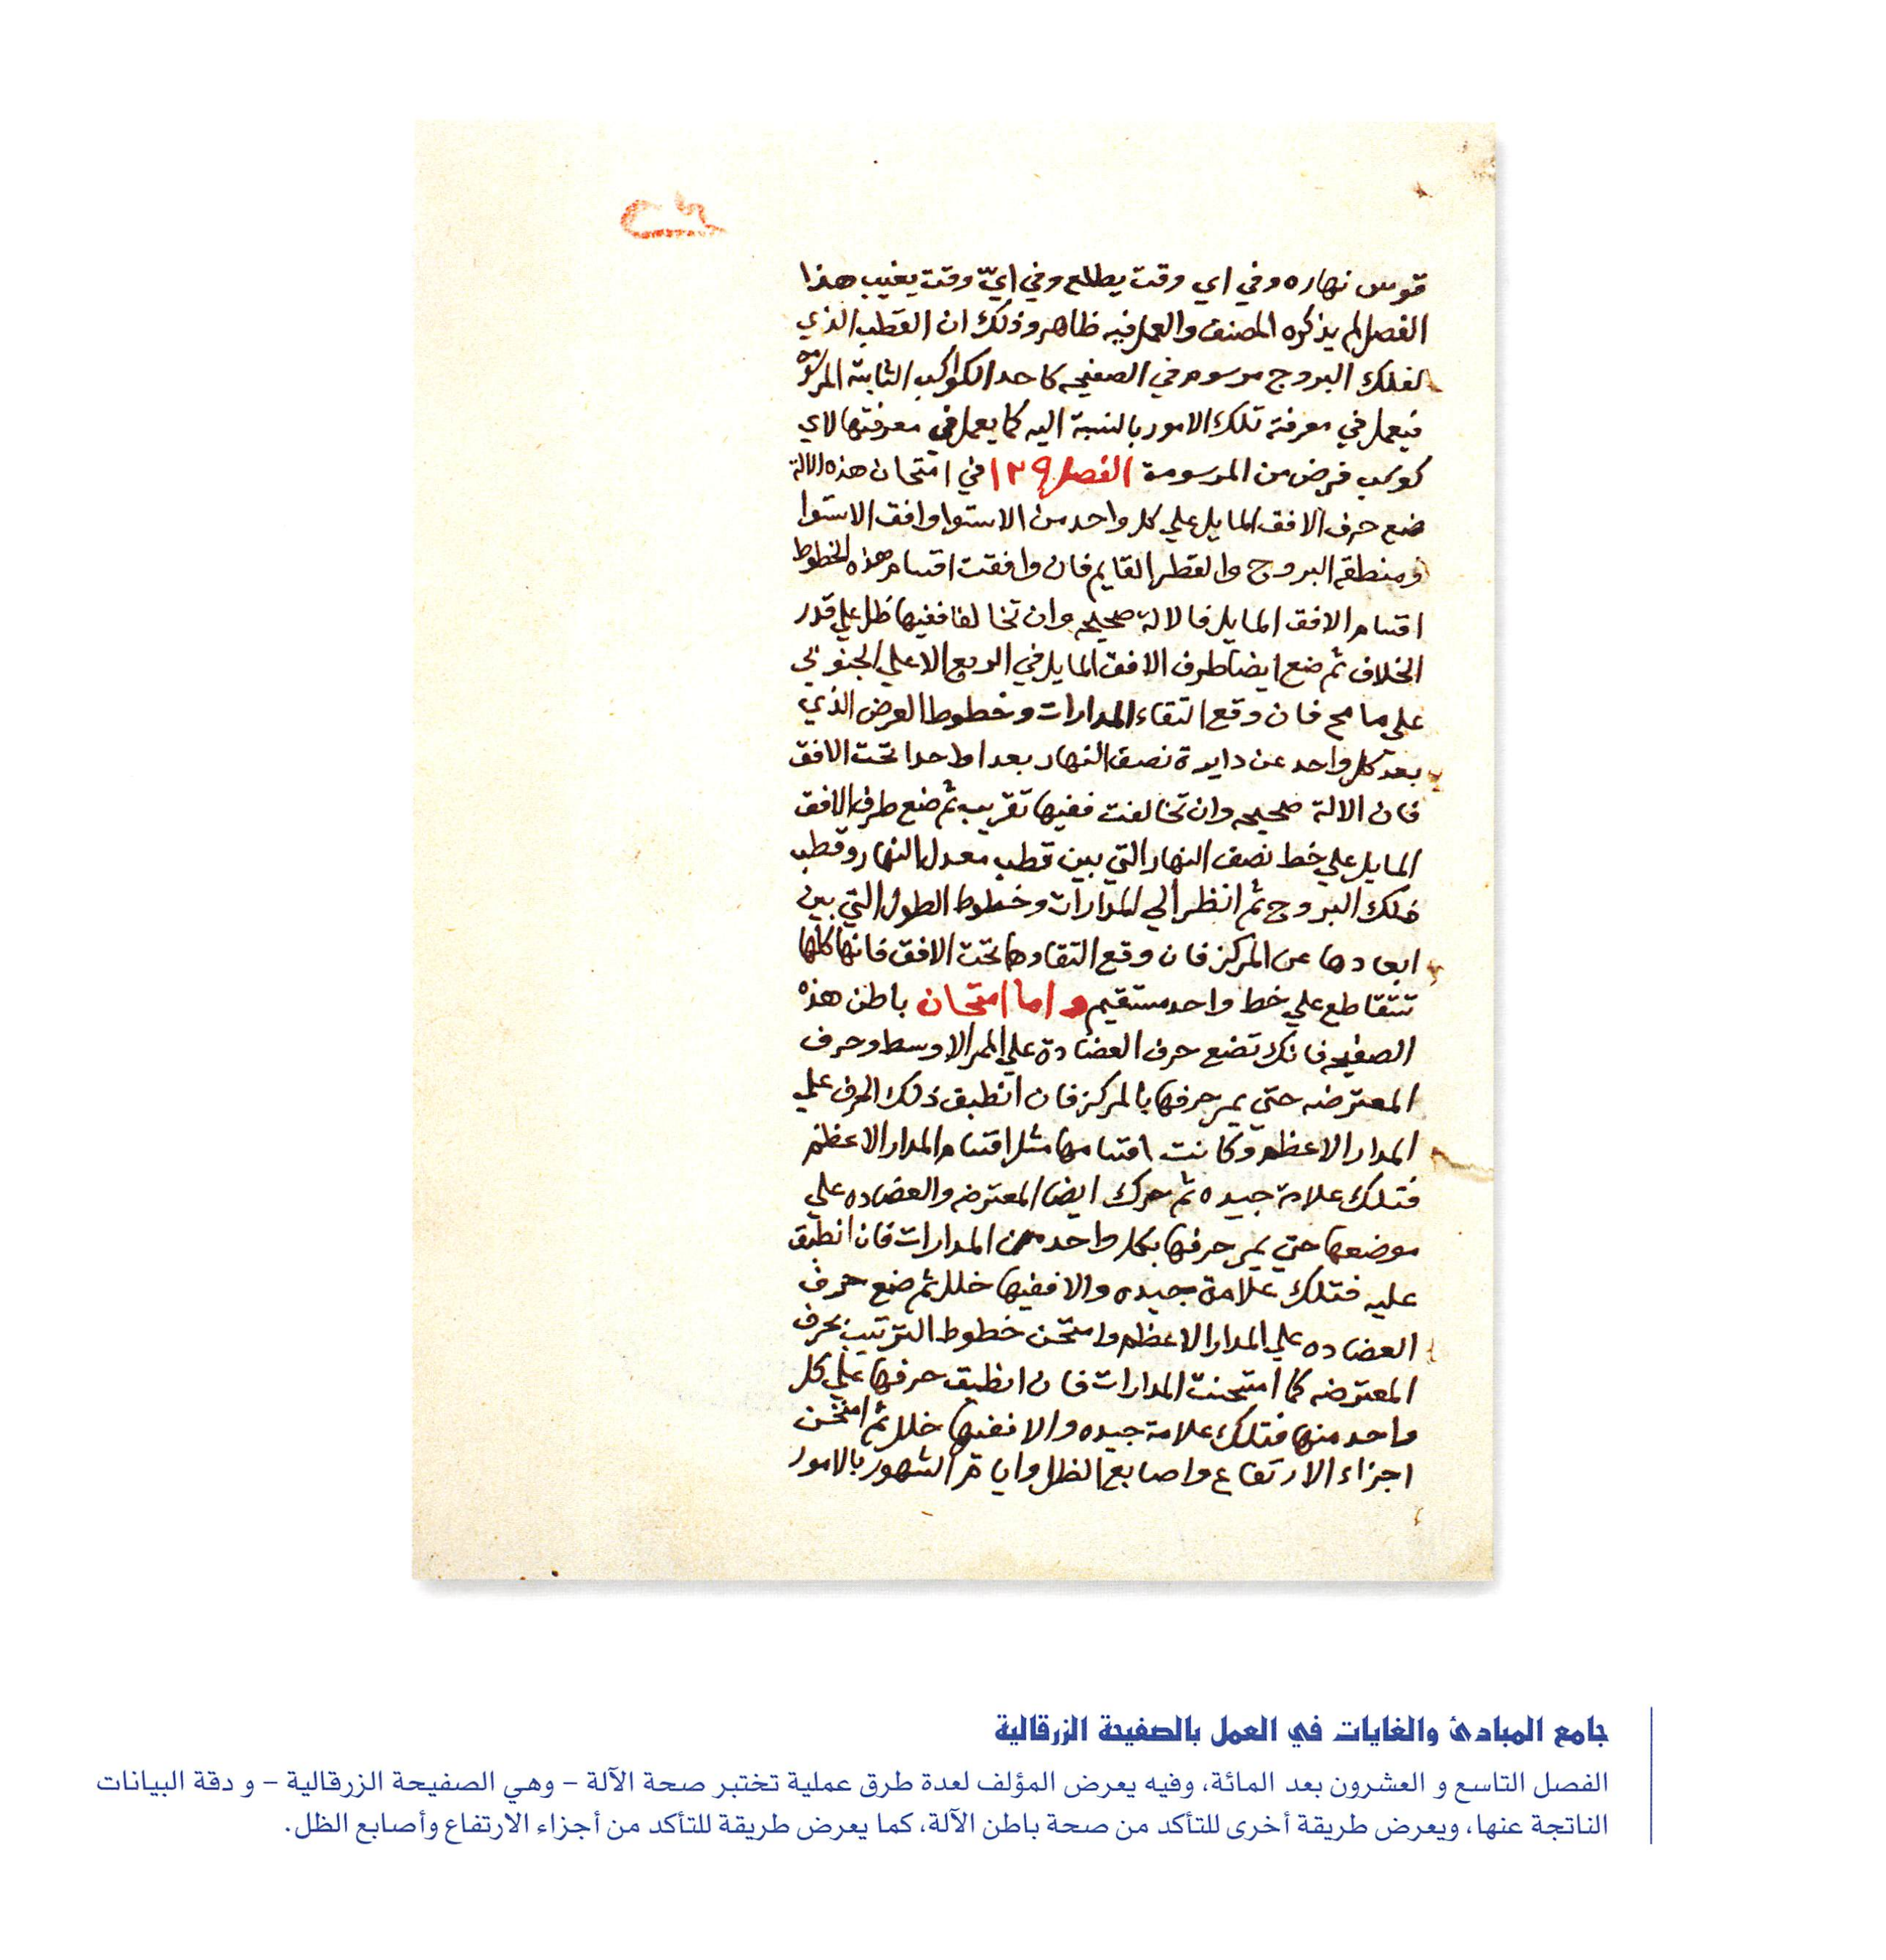 قوس نهاره وفي اي وقت يطلع وفي ايّ وقت يغيب هذا
الفصل لم يذكره المصنف والعمل فيه ظاهر وذلك ان القطب الذي
لفلك البروج مرسوم في الصفيحه كاحد الكواكب الثابتة المرسومة
فيعمل في معرفة تلك الامور بالنسبة اليه كما يعمل في معرفتها لاي
كوكب فرض من المرسومة الفصل ١٢٩ في امتحان هذه الالة
ضع حرف الافق المايل علي كل واحد من الاستوا وافق الاستوا
ومنطقة البروج والقطر القايم فان وافقت اقسام هذه الخطوط
اقسام الافق المايل فالالة صحيحه وان تخالفا ففيها خلل علي قدر
الخلاف ثم ضع ايضا طرف الافق المايل في الربع الاعلي الجنوبي
علي ما فان وقع التقاء المدارات وخطوط العرض الذي
بعد كل واحد عن دايرة نصف النهار بعدا واحدا تحت الافق
فان الالة صحيحه وان تخالفت ففيها تقريب ثم ضع طرف الافق
المايل علي خط نصف النهار التي بين قطب معدل النهار وقطب
فلك البروج ثم انظر الي المدارات وخطوط الطول التي بين
ابعادها عن المركز فان وقع التقاوها تحت الافق فانها كلها
تتقاطع علي خط واحد مستقيم واما امتحان باطن هذه
الصفيحه فانك تضع حرف العضادة علي الممر الاوسط وحرف
المعترضه حتي يمر حرفها بالمركز فان انطبق ذلك الحرف علي
المدار الاعظم وكانت اقسامها مثل اقسام المدار الاعظم
فتلك علامة جيده ثم حرك ايضا المعترضه والعضاده علي
موضعها حتي يمر حرفها بكل واحد من المدارات فان انطبق
عليه فتلك علامة جيده والا ففيها خلل ثم ضع حرف
العضاده علي المدار الاعظم وامتحن خطوط الترتيب بحرف
المعترضه كما امتحنت المدارات فان انطبق حرفها علي كل
واحد منها فتلك علامة جيده والا ففيها خلل ثم امتحن
اجزاء الارتفاع واصابع الظل وايام الشهور بالامور
جامع المبادئ والغايات في العمل بالصفيحة الزرقالية
الفصل التاسع و العشرون بعد المائة، وفيه يعرض المؤلف لعدة طرق عملية تختبر صحة الآلة – وهي الصفيحة الزرقالية – و دقة البيانات
الناتجة عنها، ويعرض طريقة أخرى للتأكد من صحة باطن الآلة، كما يعرض طريقة للتأكد من أجزاء الارتفاع وأصابع الظل.